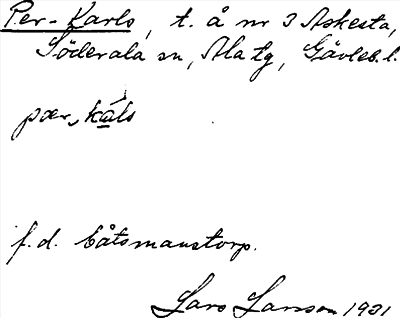 Per-Karls, t. å nr 3 Askesta,
Söderala sn, Ala tg, Gävleb. l.
pær, káls
f.d. båtsmanstorp.
Lars Larsson 1931